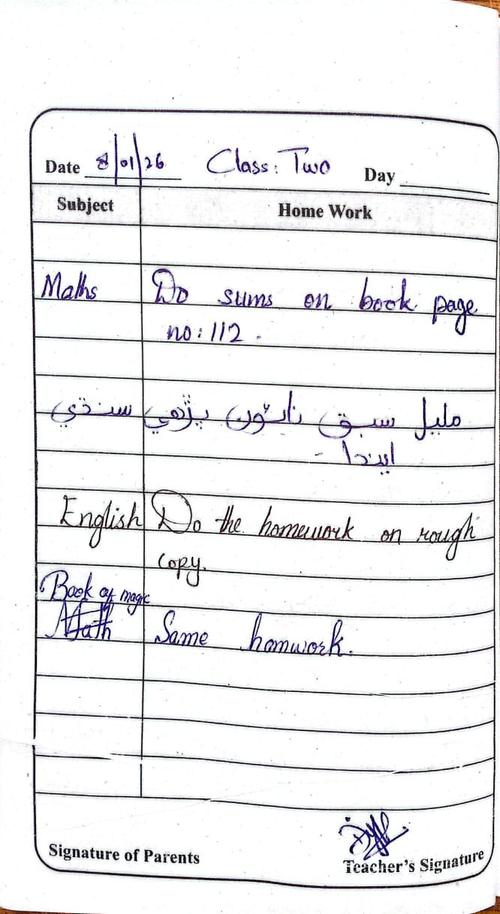 Date 8/01/26 Class: Two Day
Subject Home Work
Maths Do sums on book page
no: 112.
سنڌي مليل سبق نائون پڙهي
ايندا -
English Do the homework on rough
copy.
Book of magic
Math Same homwork.
Signature of Parents Teacher's Signature